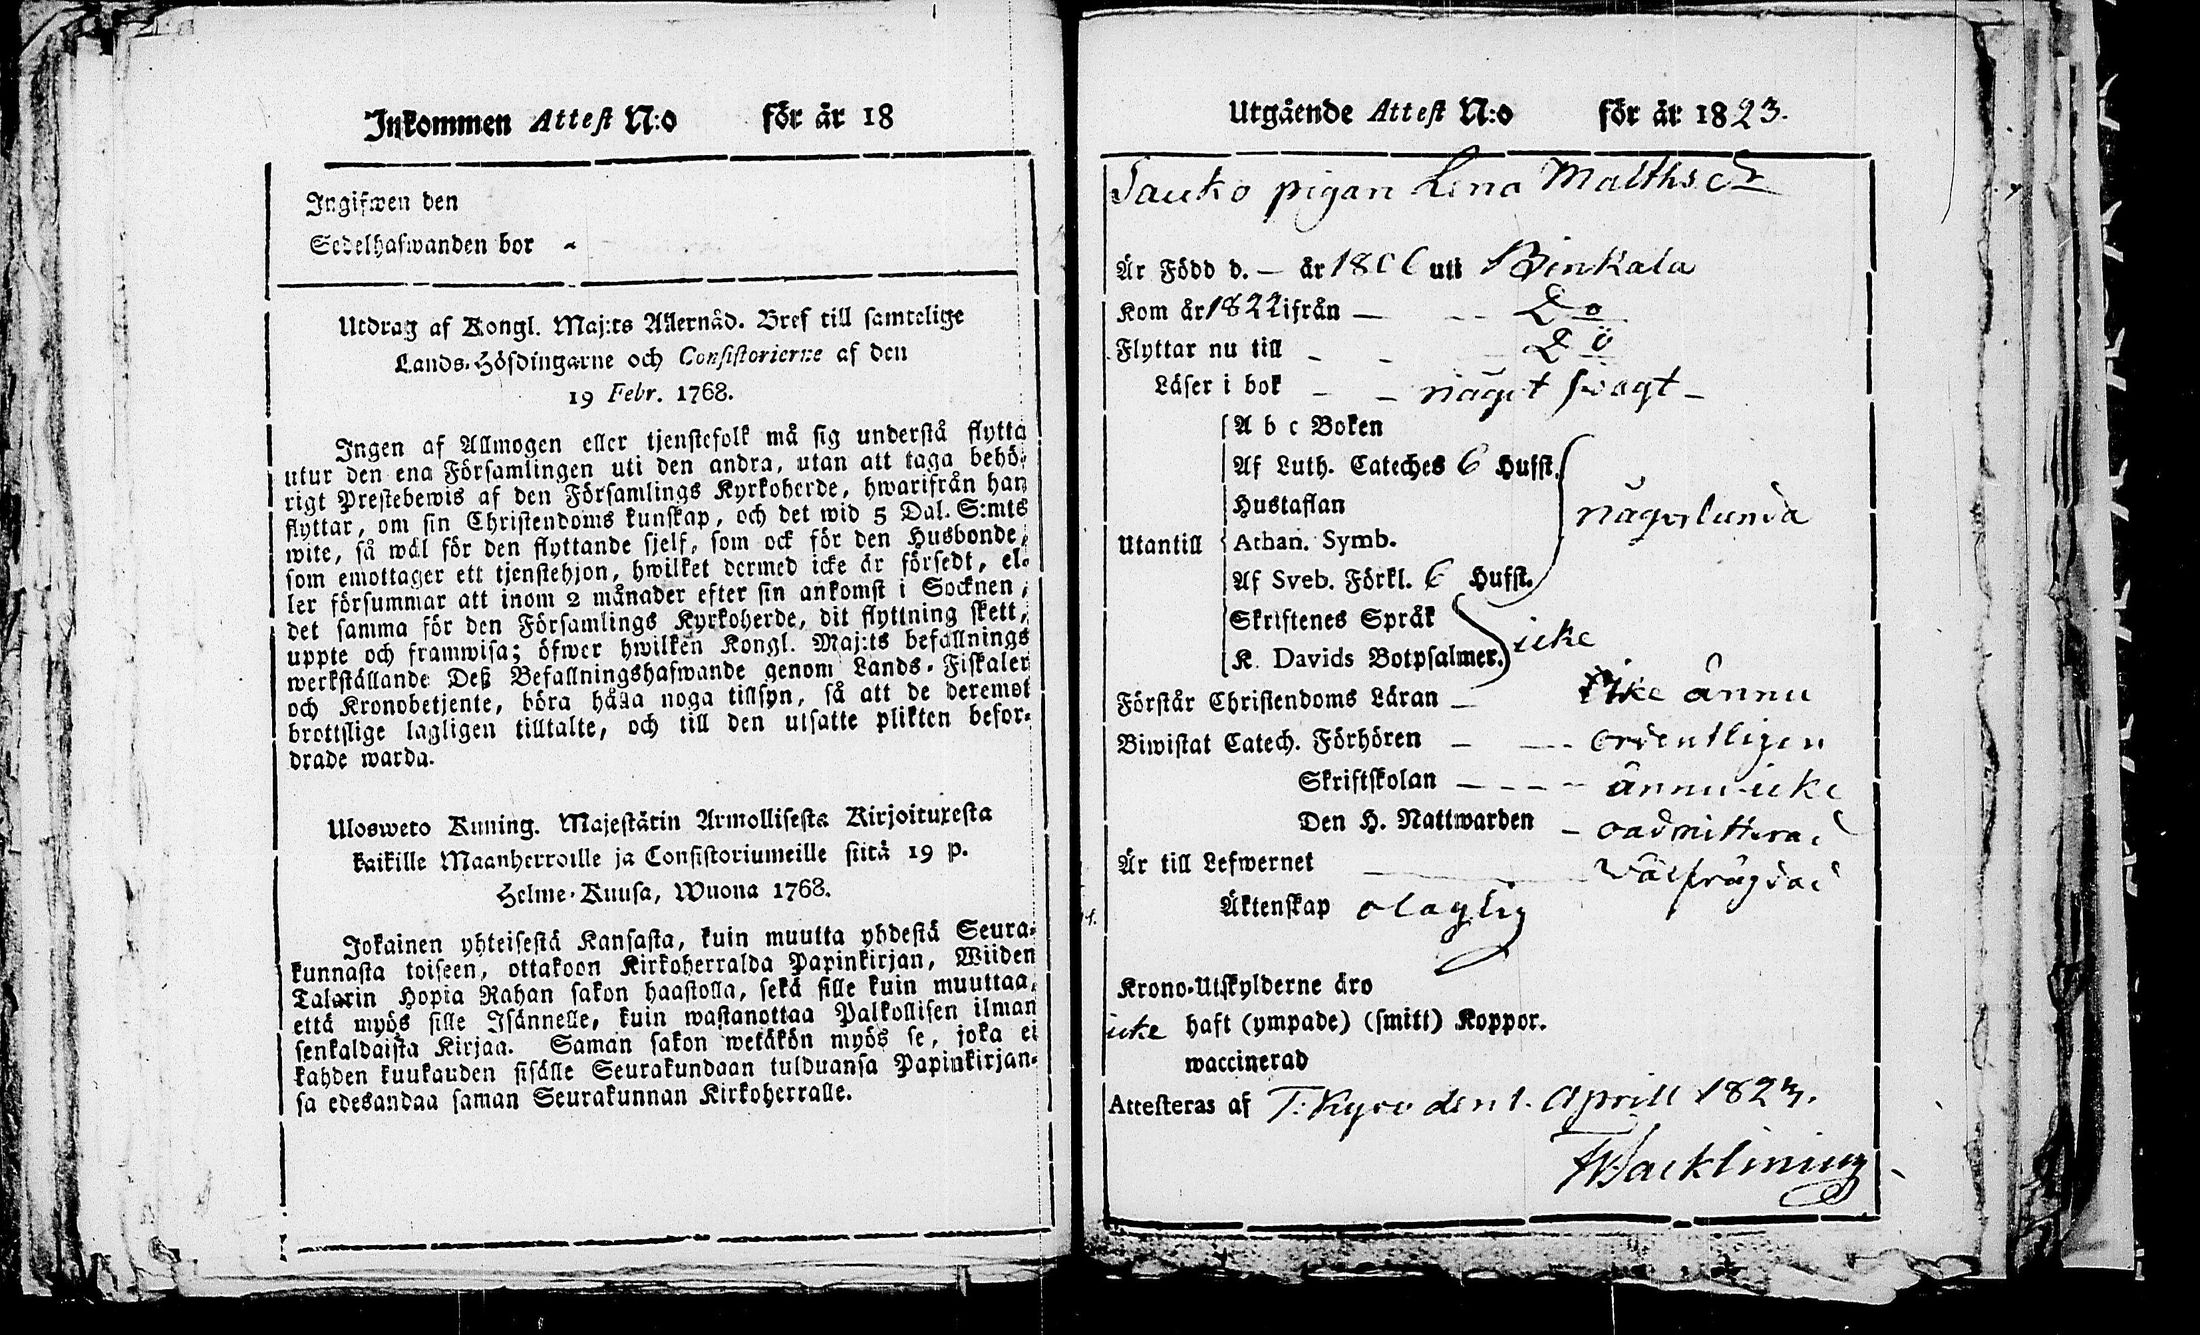 Inkommen Attest N:o för år 18
Ingifwen den
Sedelhafwanden bor -
Utdrag af Kongl. Maj:ts Allernåd. Bref till samtelige
Lands-Höfdingarne och Consistorierne af den
19 Febr. 1768.
Ingen af Allmogen eller tjenstefolk må sig understå flytta
utur den ena Församlingen uti den andra, utan att taga behö-
rigt Prestebewis af den Församlings Kyrkoherde, hwarifrån han
flyttar, om sin Christendoms kunskap, och det wid 5 Dal. S:mts
wite, så wäl för den flyttande sjelf, som ock för den Husbonde,
som emottager ett tjenstehjon, hwilket dermed icke är försedt, el-
ler försummar att inom 2 månader efter sin ankomst i Socknen,
det samma för den Församlings Kyrkoherde, dit flyttning skett,
uppte och framwisa; öfwer hwilken Kongl. Maj:ts befallnings
werkställande Deß Befallningshafwande genom Lands-Fiskaler
och Kronobetjente, böra hålla noga tillsyn, så att de deremot
brottslige lagligen tilltalte, och till den utsatte plikten befor-
drade warda.
Ulosweto Kuning. Majestätin Armollisesta Kirjoituxesta
kaikille Maanherroille ja Consistoriumeille siitä 19 p.
Helme-Kuusa, Wuona 1768.
Jokainen yhteisestä Kansasta, kuin muutta yhdestä Seura-
kunnasta toiseen, ottakoon Kirkoherralda Papinkirjan, Wiiden
Talarin Hopia Rahan sakon haastolla, sekä sille kuin muuttaa,
että myös sille Isännelle, kuin wastanottaa Palkollisen ilman
senkaldaista Kirjaa. Saman sakon wetäkön myös se, joka ei
kahden kuukauden sisälle Seurakundaan tulduansa Papinkirjan-
sa edesandaa saman Seurakunnan Kirkoherralle.
Utgående Attest N:o för år 1823.
Sauko pigan Lena Matths dr
Är Född d. – år 1806 uti Birkala
Kom år 1822 ifrån – – – Do
Flyttar nu till – – – Do
Läser i bok – – något swagt –
A b c Boken
Af Luth. Cateches 6 Hufst.
Hustaflan
någorlunda
Utantill Athan. Symb.
Af Sveb. Förkl. 6 Hufst.
Skriftenes Språk
icke
K. Davids Botpsalmer.
Förstår Christendoms Läran – icke ännu
Biwistat Catech. Förhören – – – ordentligen
Skriftskolan – – – – ännu icke
Den H. Nattwarden – oadmitterad
Är till Lefwernet wälfrägdad
Äktenskap olaglig
Krono-Utskylderne äro
icke haft (ympade) (smitt) Koppor.
waccinerad
Attesteras af T: Kyro den 1. Aprill 1823.